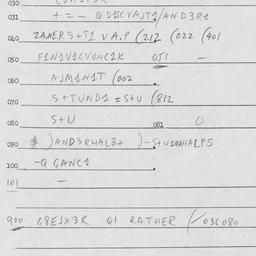 030
031 + = - QD1CVAJT1/AND3R1
040 ZANERS+T1 VA.P (212 (022 (401
050 F1N1V1CVONC1K 051 -
060 AJM1N1T (002
070 S+TUND1 = S+U (812
080 S+U 081 0
090 $ )AND3RHALB+ )-S+U1NAHALPS
100 -Q GANC1
101 -
900 G8EJX3R Q1 RATHER (/03C080